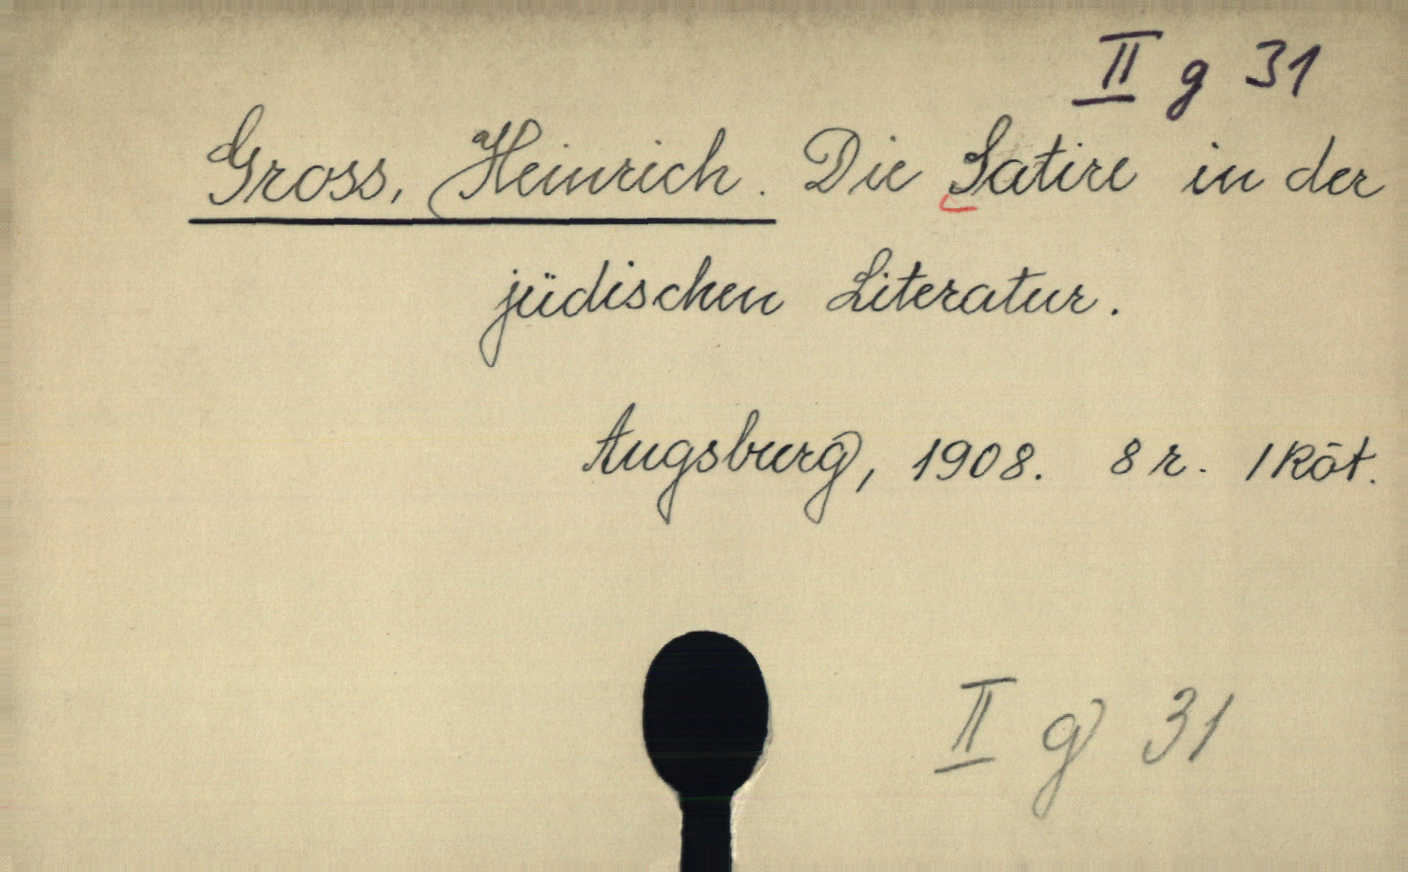 II g 31
Gross, Heinrich. Die Satire in der
jüdischen Literatur.
Augsburg, 1908. 8 r. 1 Köt.
II g 31